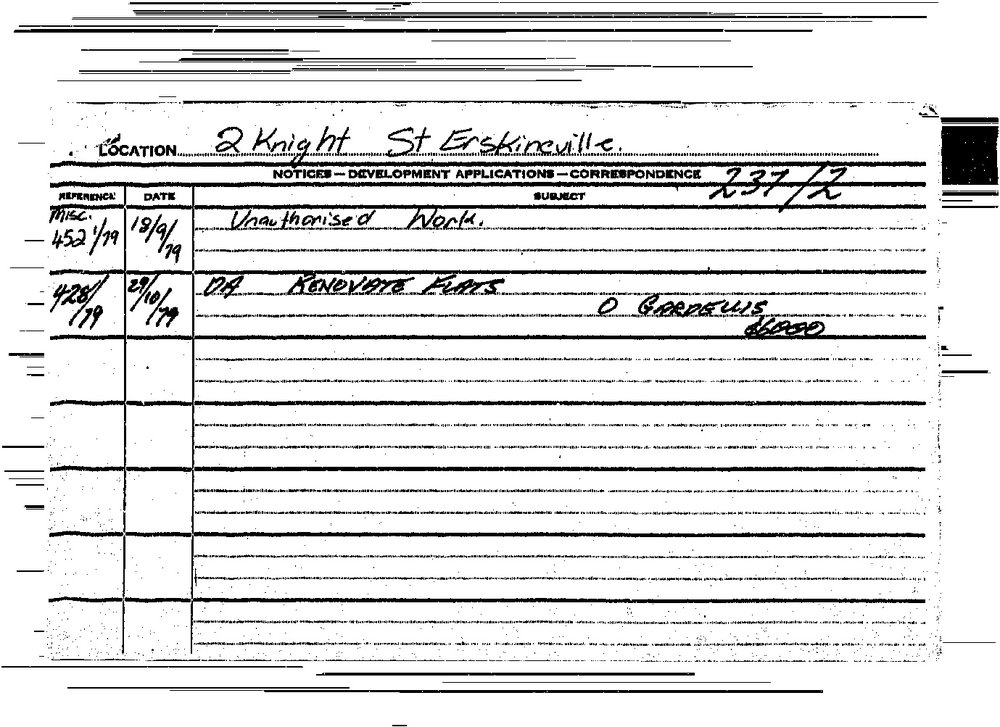 LOCATION 2 Knight St Erskineville.
NOTICES — DEVELOPMENT APPLICATIONS — CORRESPONDENCE 237/2
REFERENCE DATE SUBJECT
Misc. 18/9/79 Unauthorised Work.
4521/79
428/79 29/10/79 DA RENOVATE FLATS
O GARDELLIS
$6000